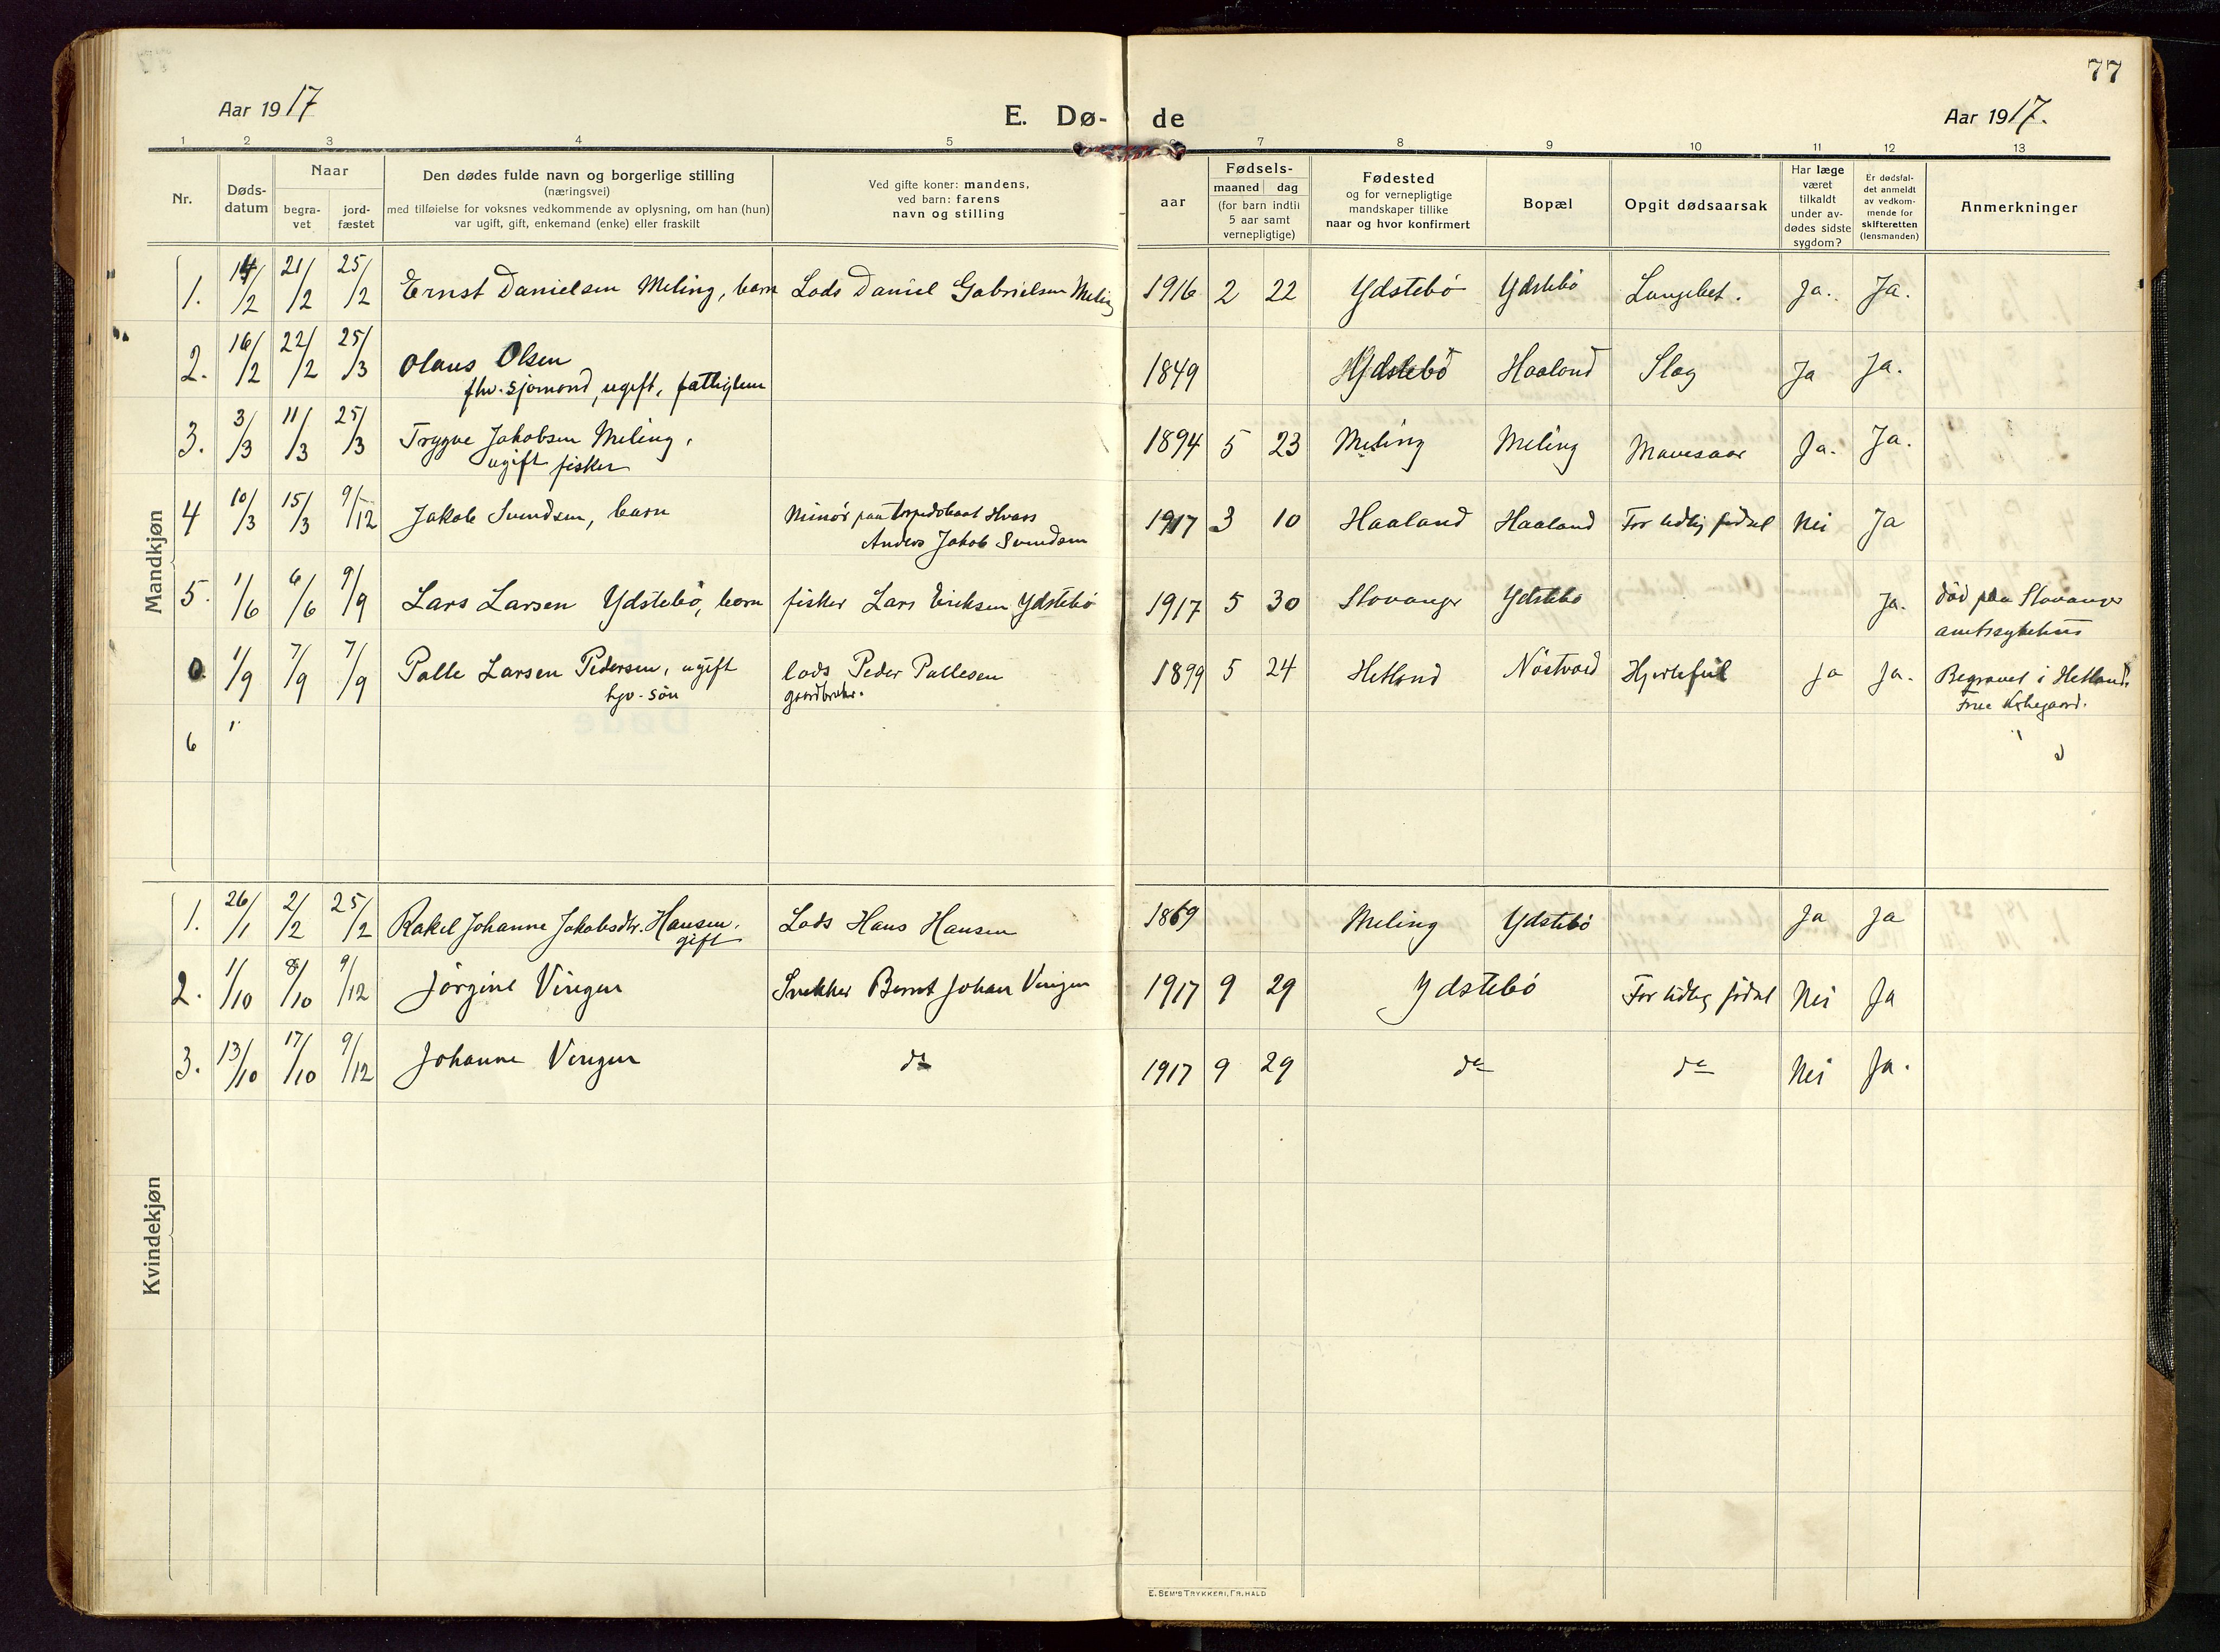 77
Aar 1917
E. Dø-
de
Aar 1917.
1 2 3 4 5 7 8 9 10 11 12 13
Nr.
Døds-
datum
Naar
begra-
vet
jord-
fæstet
Den dødes fulde navn og borgerlige stilling
(næringsvei)
med tilføielse for voksnes vedkommende av oplysning, om han (hun)
var ugift, gift, enkemand (enke) eller fraskilt
Ved gifte koner: mandens,
ved barn: farens
navn og stilling
Fødsels-
aar
maaned dag
(for barn indtil
5 aar samt
vernepligtige)
Fødested
og for vernepligtige
mandskaper tillike
naar og hvor konfirmert
Bopæl
Opgit dødsaarsak
Har læge
været
tilkaldt
under av-
dødes sidste
sygdom?
Er dødsfal-
det anmeldt
av vedkom-
mende for
skifteretten
(lensmanden)
Anmerkninger
Mandkjøn
1. 14/2 21/2 25/2 Ernst Danielsen Meling, barn Lods Daniel Gabrielsen Meling 1916 2 22 Ydstebö Ydstebö Lungebet. Ja. Ja.
2. 16/2 22/2 25/3 Olaus Olsen 1849 Ydstebö Haaland Slag Ja Ja.
fhv. sjømand, ugift, fattiglem
3. 3/3 11/3 25/3 Trygve Jakobsen Meling, 1894 5 23 Meling Meling Mavesaar Ja. Ja.
ugift fisker
4 10/3 15/3 9/12 Jakob Svendsen, barn Minör paa torpedobaat Hvass 1917 3 10 Haaland Haaland For tidlig födsel Nei Ja
Anders Jakob Svendsen
5. 1/6 6/6 9/9 Lars Larsen Ydstebö, barn fisker Lars Eriksen Ydstebö 1917 5 30 Stavanger Ydstebö Ja. död paa Stavanger
amtssykehus
0. 1/9 7/9 7/9 Palle Larsen Pedersen, ugift lods Peder Pallesen 1899 5 24 Hetland Nöstvold Hjertefeil Ja Ja. Begravet i Hetland.
gaardbruker.
6
Kvindekjøn
1. 26/1 2/2 25/2 Rakel Johanne Jakobsdtr. Hansen, Lods Hans Hansen 1869 Meling Ydstebö Ja Ja
gift
2. 1/10 8/10 9/12 Jörgine Viregen Snekker Bernt Johan Viregen 1917 9 29 Ydstebö For tidlig födsel Nei Ja
3. 13/10 17/10 9/12 Johanne Viregen do 1917 9 29 do do Nei Ja.
E. SEM'S TRYKKERI, FR.HALD